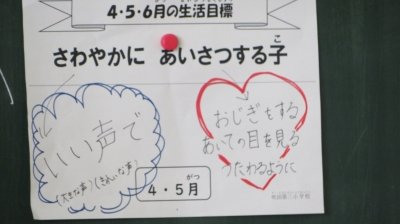 4・5・6月の生活目標
さわやかに あいさつする子
こ
いい声で
(大きな声)(きれいな声)
おじぎをする
あいての目を見る
つたわるように
がつ
4・5月